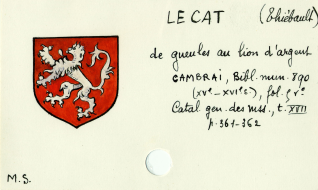 LE CAT (Thiébault)
de gueules au lion d'argent
CAMBRAI, Bibl. mun. 890
(XVe-XVIe s.), fol. 5 r°
Catal. gen. des mss., t. XVII
p. 361-362
M.S.